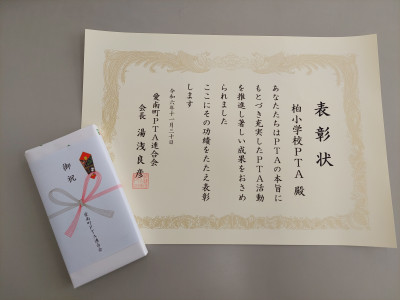 表彰状
柏小学校PTA 殿
あなたたちはPTAの本旨に
もとづき充実したPTA活動
を推進し著しい成果をおさめ
られました
ここにその功績をたたえ表彰
します
令和六年十一月三十日
愛南町PTA連合会
会長 湯浅良彦
御祝
愛南町PTA連合会